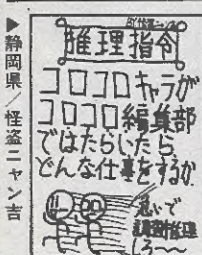 ▶静岡県／怪盗ニャン吉
推理指令
コロコロキャラが
コロコロ編集部
ではたらいたら
どんな仕事をするか
急いで
推理
しろ〜